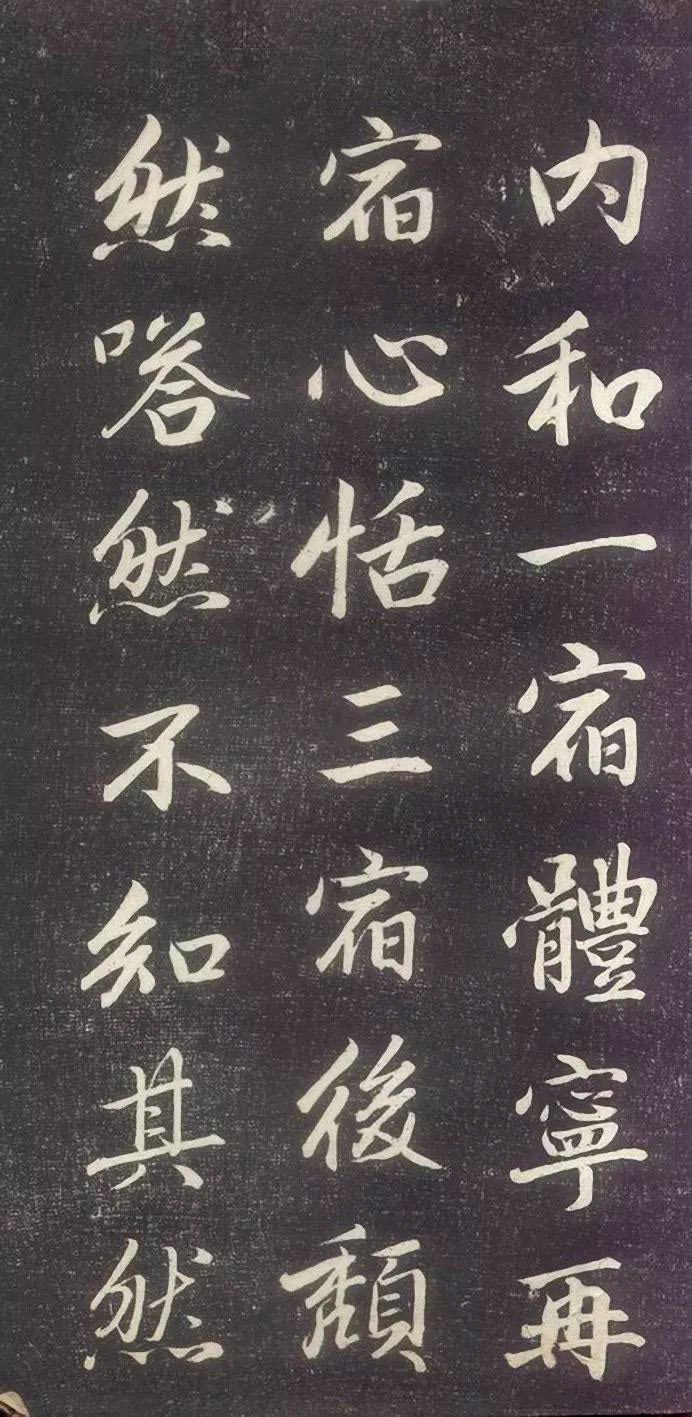 内和一宿體寧再
宿心恬三宿後頹
然嗒然不知其然